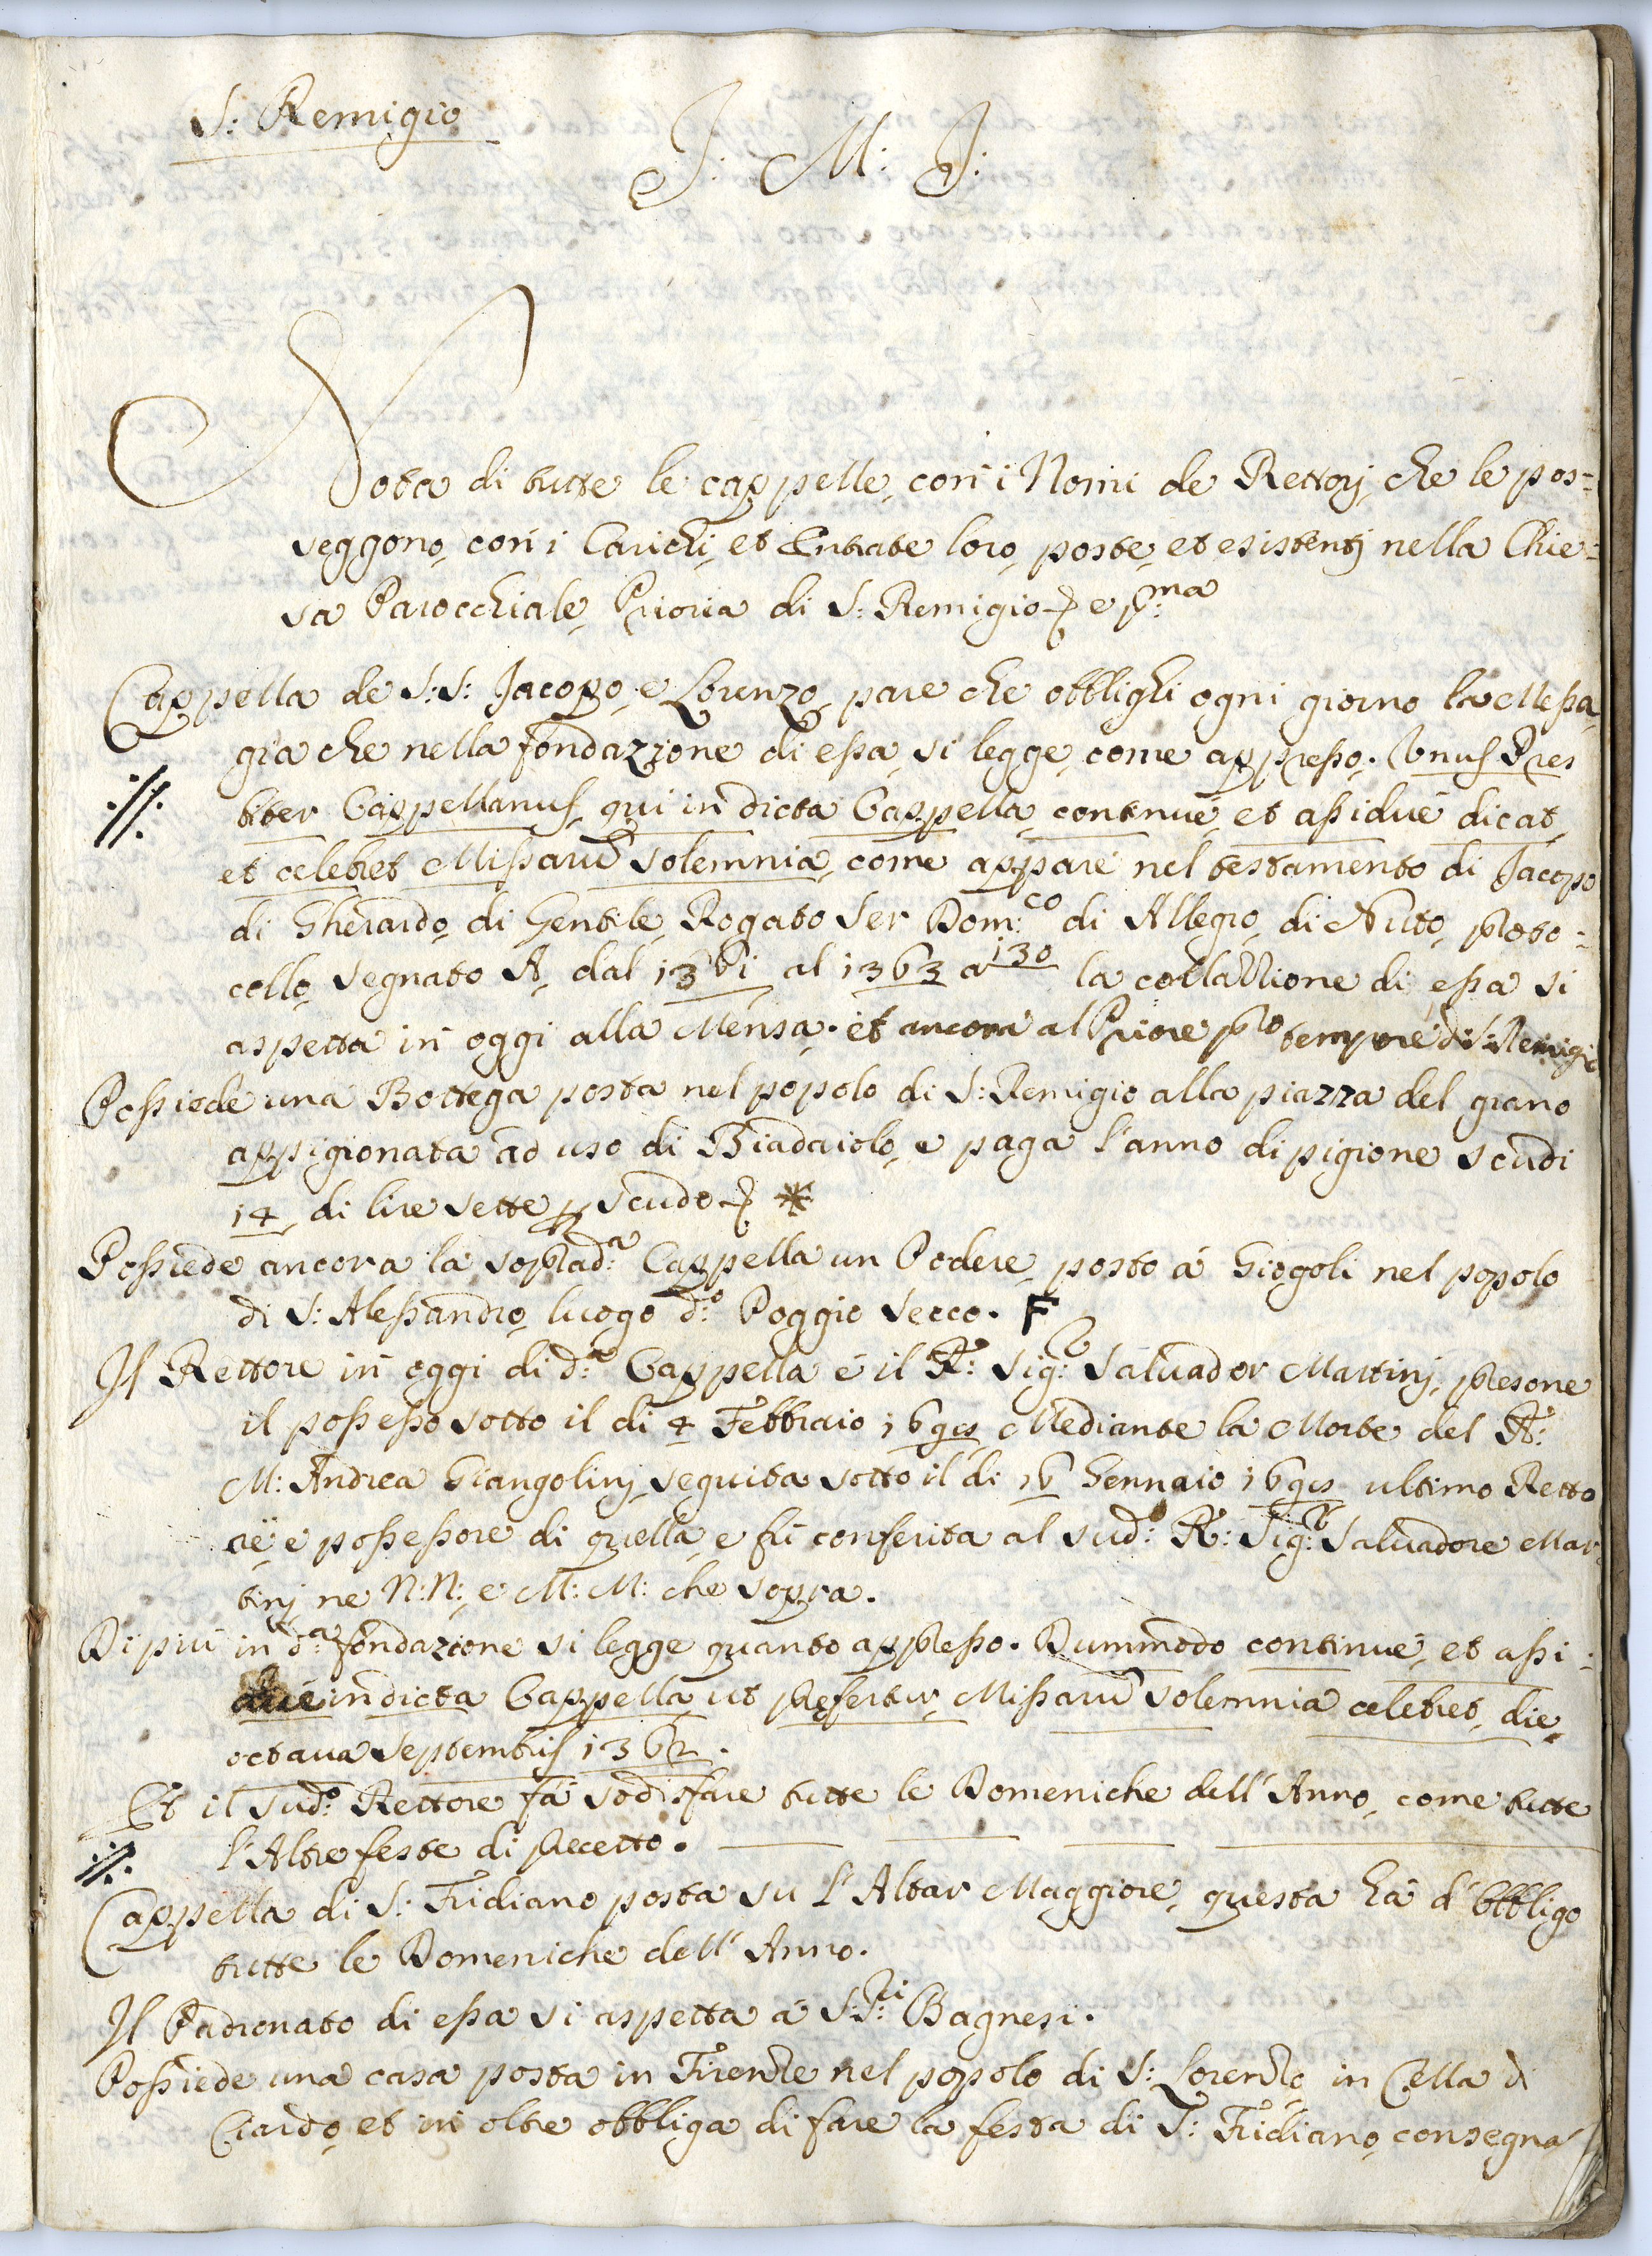 S: Remigio
J: M: J:
Nota di tutte le cappelle, con i Nomi de Rettorj, che le pos=
seggono, con i Carichi, et Entrate loro, poste, et esistentj nella Chie=
sa Parocchiale, Prioria di S: Remigio e p:ma
Cappella de S:S: Jacopo, e Lorenzo, pare che obblighi ogni giorno la Messa,
gia che nella fondazzione di essa, si legge, come appresso. Unus Pres
biter Cappellanus, qui in dicta Cappella, continué, et assidué dicat,
et celebret Missarũ solemnia, come appare nel testamento di Jacopo
di Gherardo, di Gentile, Rogato Ser Dom:co di Allegro, di Nuto, proto=
collo, segnato A, dal 1361 al 1363 a 130 la collazzione di essa si
aspetta in oggi alla Mensa. et ancora al Priore pro tempore di S: Remigio
Possiede una Bottega posta nel popolo di S: Remigio alla piazza del grano
appigionata ad uso di Biadaiolo, e paga l'anno di pigione scudi
14, di lire sette p scudo *
Possiede ancora la soprad:a Cappella un Podere, posto á Giogoli nel popolo
di S: Alessandro, luogo d:o Poggio secco. F
Il Rettore in oggi di d:a Cappella é il R: Sig:r Salvador Martinj, presone
il possesso sotto il di 4 Febbraio Mediante la Morte del R:
M: Andrea Giangolinj, seguita sotto il di 16 Gennaio ultimo Retto
re, e possessore di quella, e fú conferita al sud:o R: Sig:r Salvadore Mar
tinj ne N:N:, e M:M: che sopra.
Di piú in d:a fondazione si legge quanto appresso. Dummodo continué, et assi=
dué in dicta Cappella, ut prefertur, Missarũ solemnia celebret, die,
octava Septembris 1362.
Et il sud:o Rettore fá sodisfare tutte le Domeniche dell'Anno, come tutte
l'Altre feste di precetto.
Cappella di S: Fridiano posta su l'Altar Maggiore, questa há d'obbligo
tutte le Domeniche dell'Anno.
Il Padronato di essa si aspetta á S:S:ri Bagnesi.
Possiede una casa posta in Firenze nel popolo di S: Lorenzo, in Cella di
Ciardo, et in oltre obbliga di fare la festa di S: Fridiano, consegna